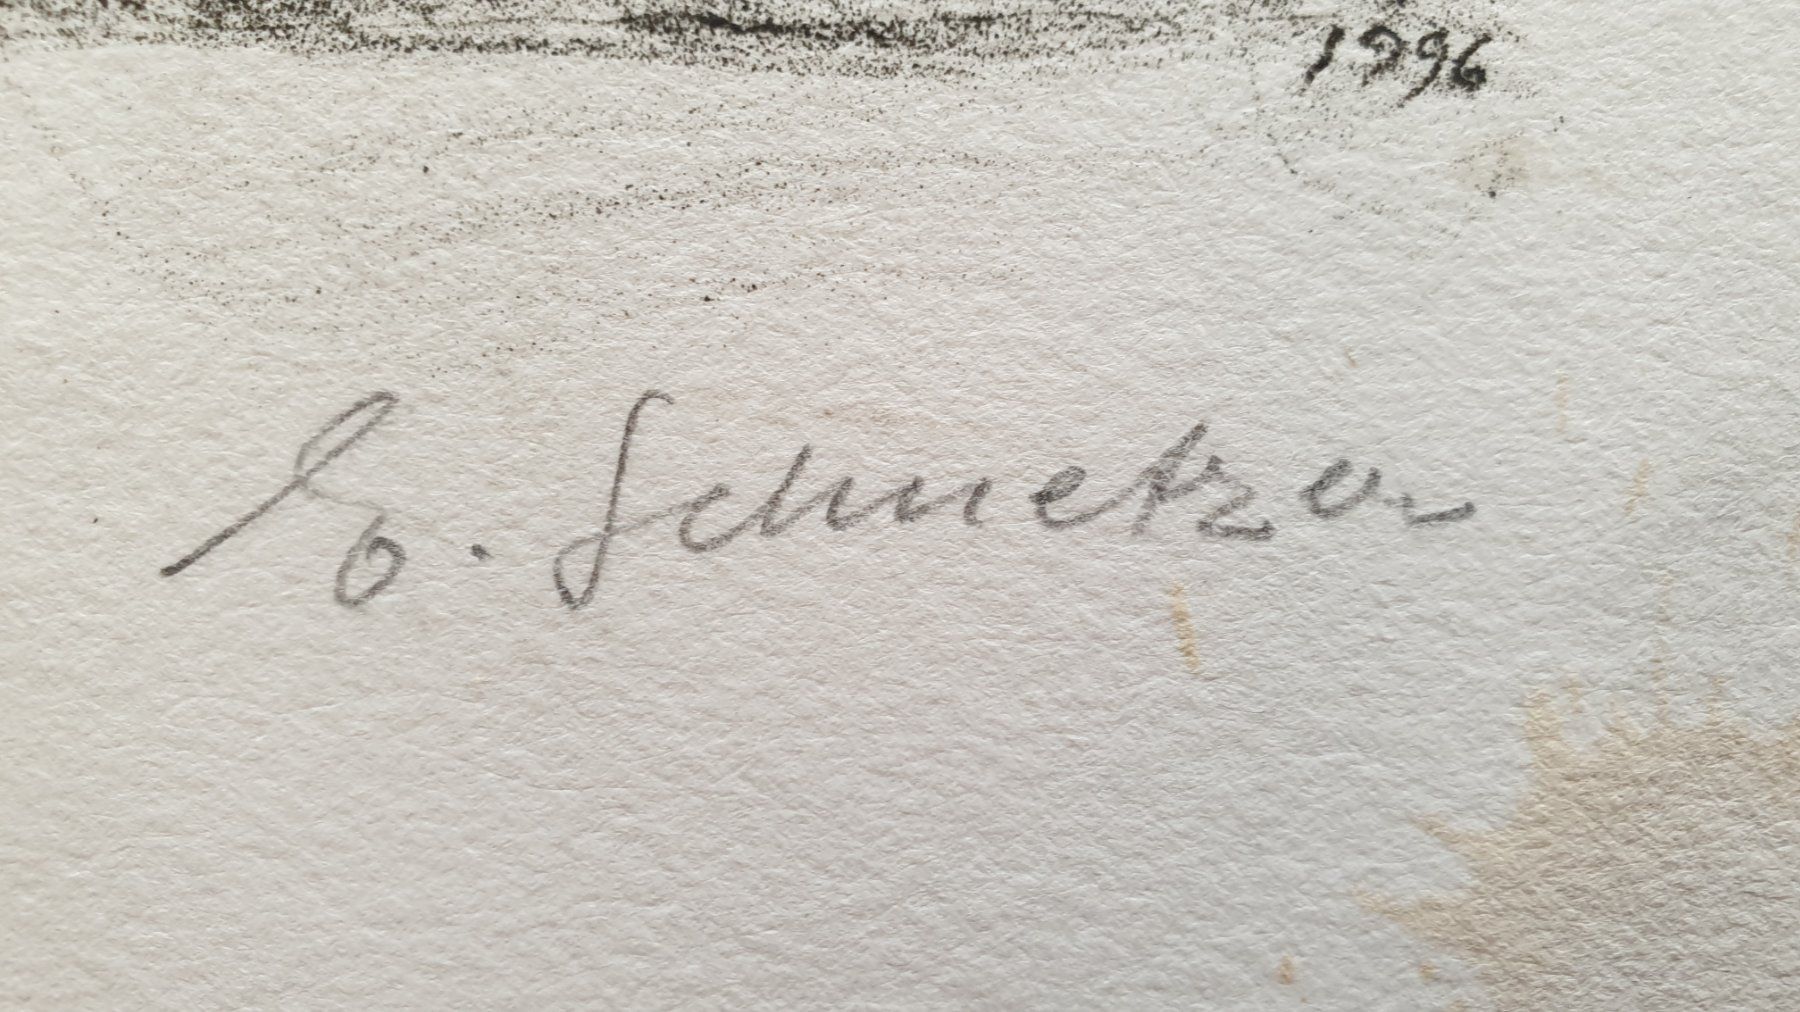 1996
E. Schmetzer